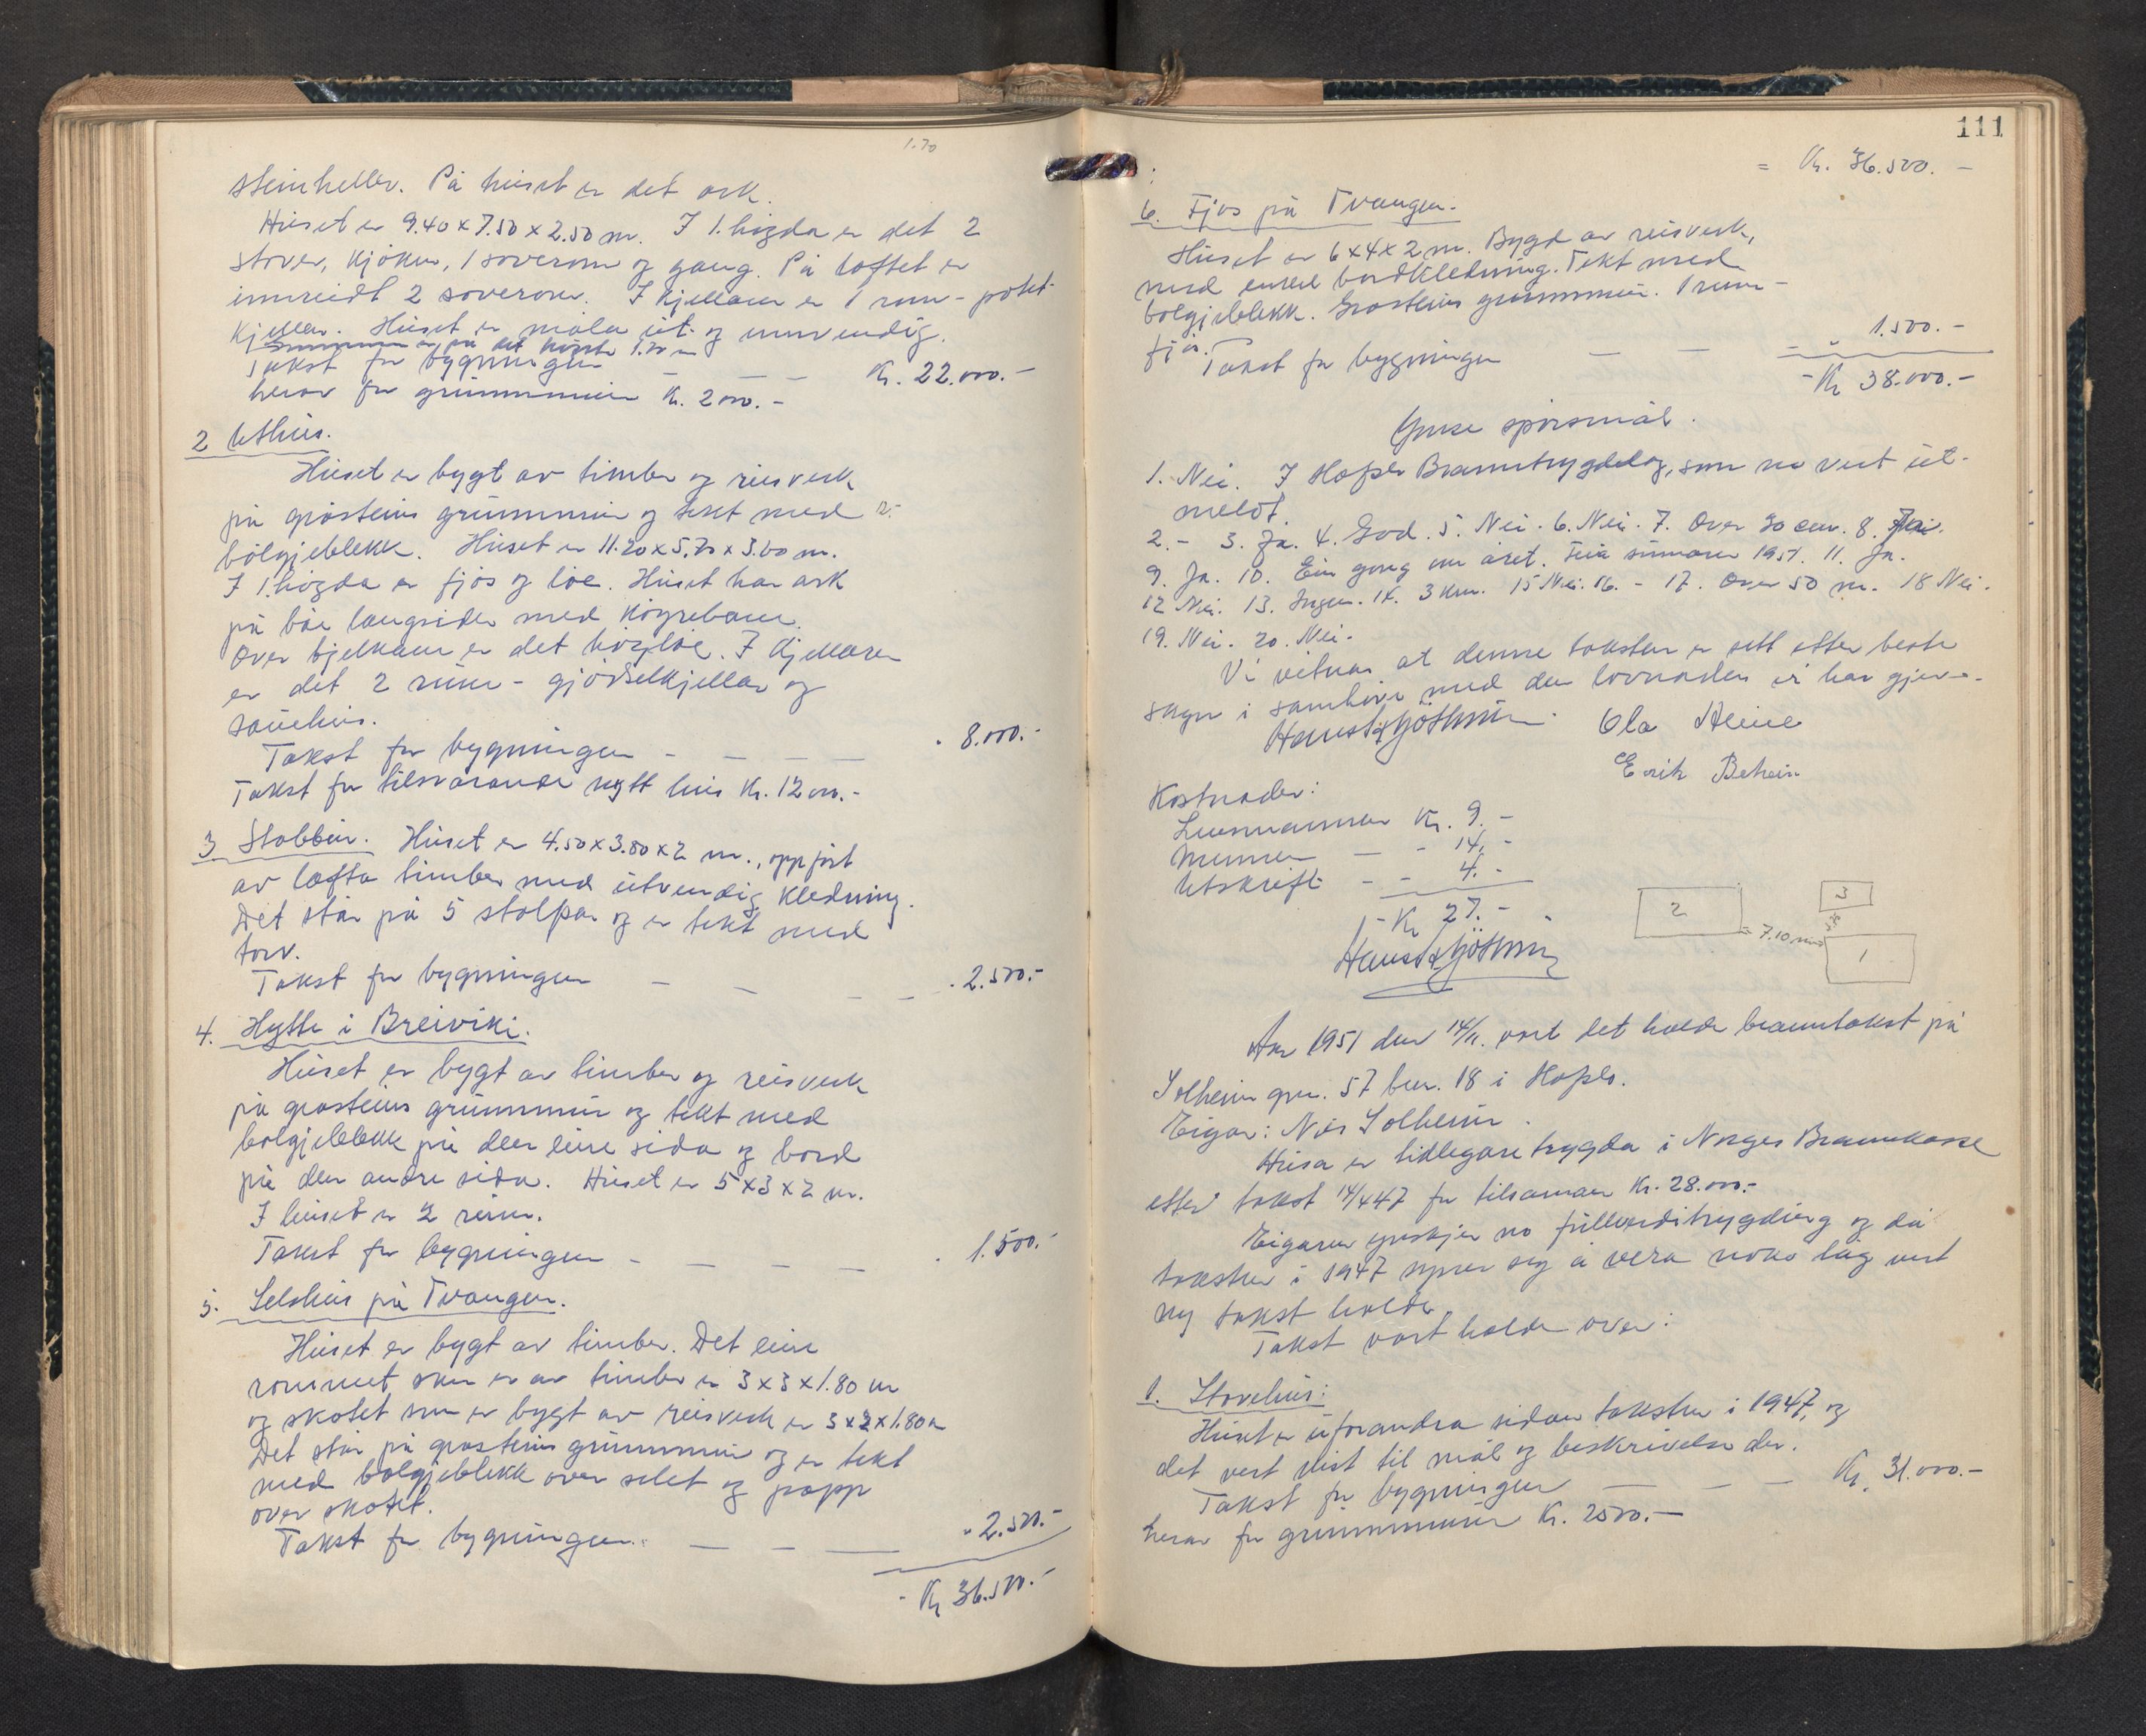 1.70
steinheller. På huset er det ark.
Huset er 9.40 x 7.50 x 2.50 m. I 1. högda er det 2
stover, kjöken, 1 soverom og gang. På loftet er
innreidt 2 soverom. I kjellaren er 1 rom - potet-
kjellar. Huset er måla ut- og innvendig.
Grunnmuren er på det högste 1.70 m
Takst for bygningen — — — Kr. 22.000.-
herav for grunnmuren Kr. 2000.-
2 Uthus.
Huset er bygt av timber og reisverk
på gråsteins grunnmur og tekt med
bölgjeblekk. Huset er 11.20 x 5.70 x 3.00 m.
I 1. högda er fjös og löe. Huset har ark
på båe langsider med köyrebane.
Over bjelkane er det höyløe. I kjellaren
er det 2 rum - gjödselkjellar og
sauehus.
Takst for bygningen - — — — " 8.000.-
Takst for tilsvarande nytt hus Kr. 12000.-
3 Stabbur. Huset er 4.50 x 3.80 x 2 m., oppfört
av lafta timber med utvendig kledning.
Det står på 5 stolpar og er tekt med
torv.
Takst for bygningen — — — — " 2.500.-
4. Hytte i Breiviki.
Huset er bygt av timber og reisverk
på gråsteins grunnmur og tekt med
bolgjeblekk på den eine sida og bord
på den andre sida. Huset er 5 x 3 x 2 m.
I huset er 2 rum.
Takst for bygningen - — — — " 1.500.-
5. Selshus på Tvangen.
Huset er bygt av timber. Det eine
rommet som er av timber er 3 x 3 x 1.80 m
og skotet som er bygt av reisverk er 3 x 2 x 1.80 m
Det står på gråsteins grunnmur og er tekt
med bolgjeblekk over selet og papp
over skotet.
Takst for bygningen. — — — " 2.500.-
Kr 36.500.-
111
= Kr. 36.500.-
6. Fjös på Tvangen.
Huset er 6 x 4 x 2 m. Bygd av reisverk,
med enkel bordkledning. Tekt med
bolgjeblekk. Gråsteins grunnmur. 1 rum -
fjös.
Takst for bygningen — — - " 1.500.-
- Kr 38.000.-
Ymse spörsmål.
1. Nei. I Hafslo Branntrygdelag, som no vert ut-
meldt.
2. - 3. Ja. 4. God. 5. Nei. 6. Nei. 7. Over 30 cm. 8. Nei.
9. Ja. 10. Ein gong om året. Feia sumaren 1951. 11. Ja.
12 Nei. 13. Ingen. 14. 3 km. 15 Nei. 16. - 17. Over 50 m. 18 Nei.
19. Nei. 20. Nei.
Vi vitnar at denne taksten er sett etter beste
skyn i samhöve med den lovnaden vi har gjeve.
Ola Heine
Erik Beheim
Kostnader:
Lensmannen Kr. 9.-
Mennene — - 14.-
Utskrift - - 4.-
- Kr 27.-
2
3
= 7.10 m
1
År 1951 den 14/11. vart det halde branntakst på
Solheim gnr. 57 bnr. 18 i Hafslo.
Eigar: Nils Solheim.
Husa er tidlegare trygda i Norges Brannkasse
etter takst 14/4 47 for tilsaman Kr. 28.000.-
Eigaren ynskjer no fullverditrygding og då
taksten i 1947 syner seg å vera noko låg vert
ny takst halde.
Takst vart halden over:
1. Stovehus:
Huset er uforandra sidan taksten i 1947, og
det vert vist til mål og beskrivelse der.
Takst for bygningen — — — Kr. 31.000.-
herav for grunnmuren Kr. 2500.-